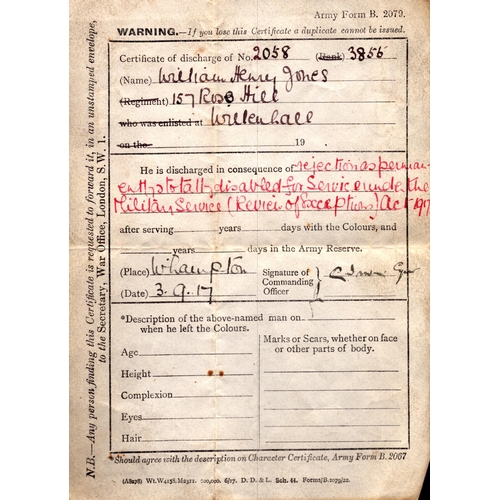 Army Form B. 2079.
WARNING.—If you lose this Certificate a duplicate cannot be issued.
Certificate of discharge of No. 2058 (Rank) 3856
(Name) William Henry Jones
(Regiment) 157 Rose Hill
who was enlisted at Willenhall
on the 19 .
He is discharged in consequence of rejection as perman-
ently & totally disabled for Service under the
Military Service (Review of Exceptions) Act 1917
after serving years days with the Colours, and
years days in the Army Reserve.
(Place) Whampton
Signature of
Commanding
Officer
(Date) 3.9.17
*Description of the above-named man on
when he left the Colours.
Age
Height
Complexion
Eyes
Hair
Marks or Scars, whether on face
or other parts of body.
*Should agree with the description on Character Certificate, Army Form B. 2067
(A8278) Wt. W4158.M2311. 200,000. 6/17. D. D. & L. Sch. 44. Forms/B.2079/22.
N.B.—Any person finding this Certificate is requested to forward it, in an unstamped envelope,
to the Secretary, War Office, London, S.W. 1.